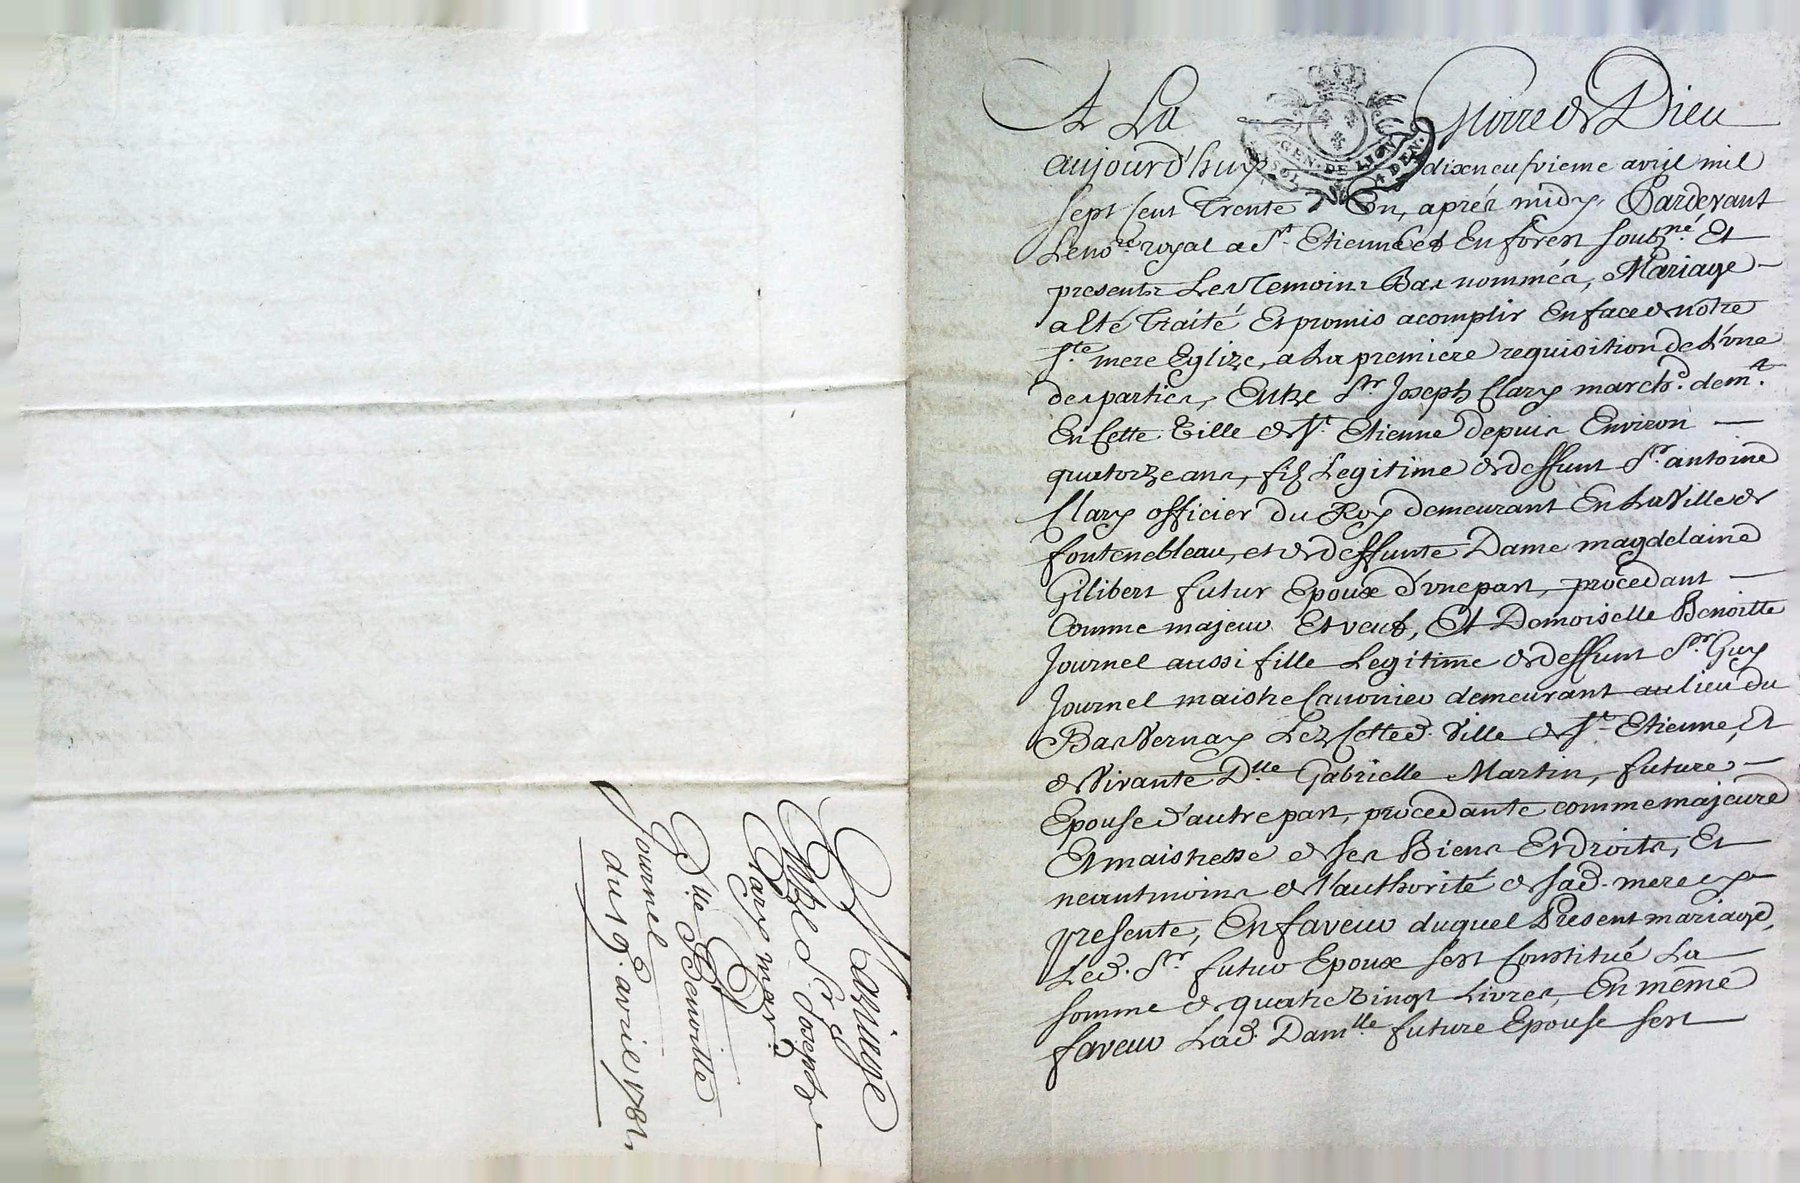 Mariage
Entre Sr. Joseph
Clary march.d
Et
D.lle Benoitte
Journel
du 19. avril 1731,
A La Gloire de Dieu
GEN. DE LION
4 DEN.
aujourd'huy dixneufvieme avril mil
sept Cent Trente Un, aprés midy, Pardevant
Le no.re royal a St. Etienne et En forest soubz.né Et
presents Les Temoins Bas nommés, Mariage
a Eté Traité Et promis acomplir En face de notre
S.te mere Eglize, a La premiere requisition de L'une
des parties, Entre Sr. Joseph Clary march.d dem.t
En Cette Ville de St. Etienne depuis Environ
quatorze ans, filz Legitime de deffunt Sr. antoine
Clary officier du Roy demeurant En La Ville de
fontenebleau, et de deffunte Dame magdelaine
Gilibert futur Epoux d'une part, procedant
Comme majeur Et veuf, Et Demoiselle Benoitte
Journel aussi fille Legitime de deffunt Sr. Guy
Journel maistre Canonier demeurant au lieu du
Bas Vernay Lez Cetted. Ville de St. Etienne, Et
de Vivante D.lle Gabrielle Martin, future
Epouse d'autre part, procedante comme majeure
Et maistresse de ses Biens Et droits, Et
neantmoins de l'authorité de sad. mere cy
presente, En faveur duquel Present mariage,
Led. Sr. futur Epoux s'est Constitué La
somme de quatre vingt Livres, En même
faveur Lad. Dam.lle future Epouse s'est